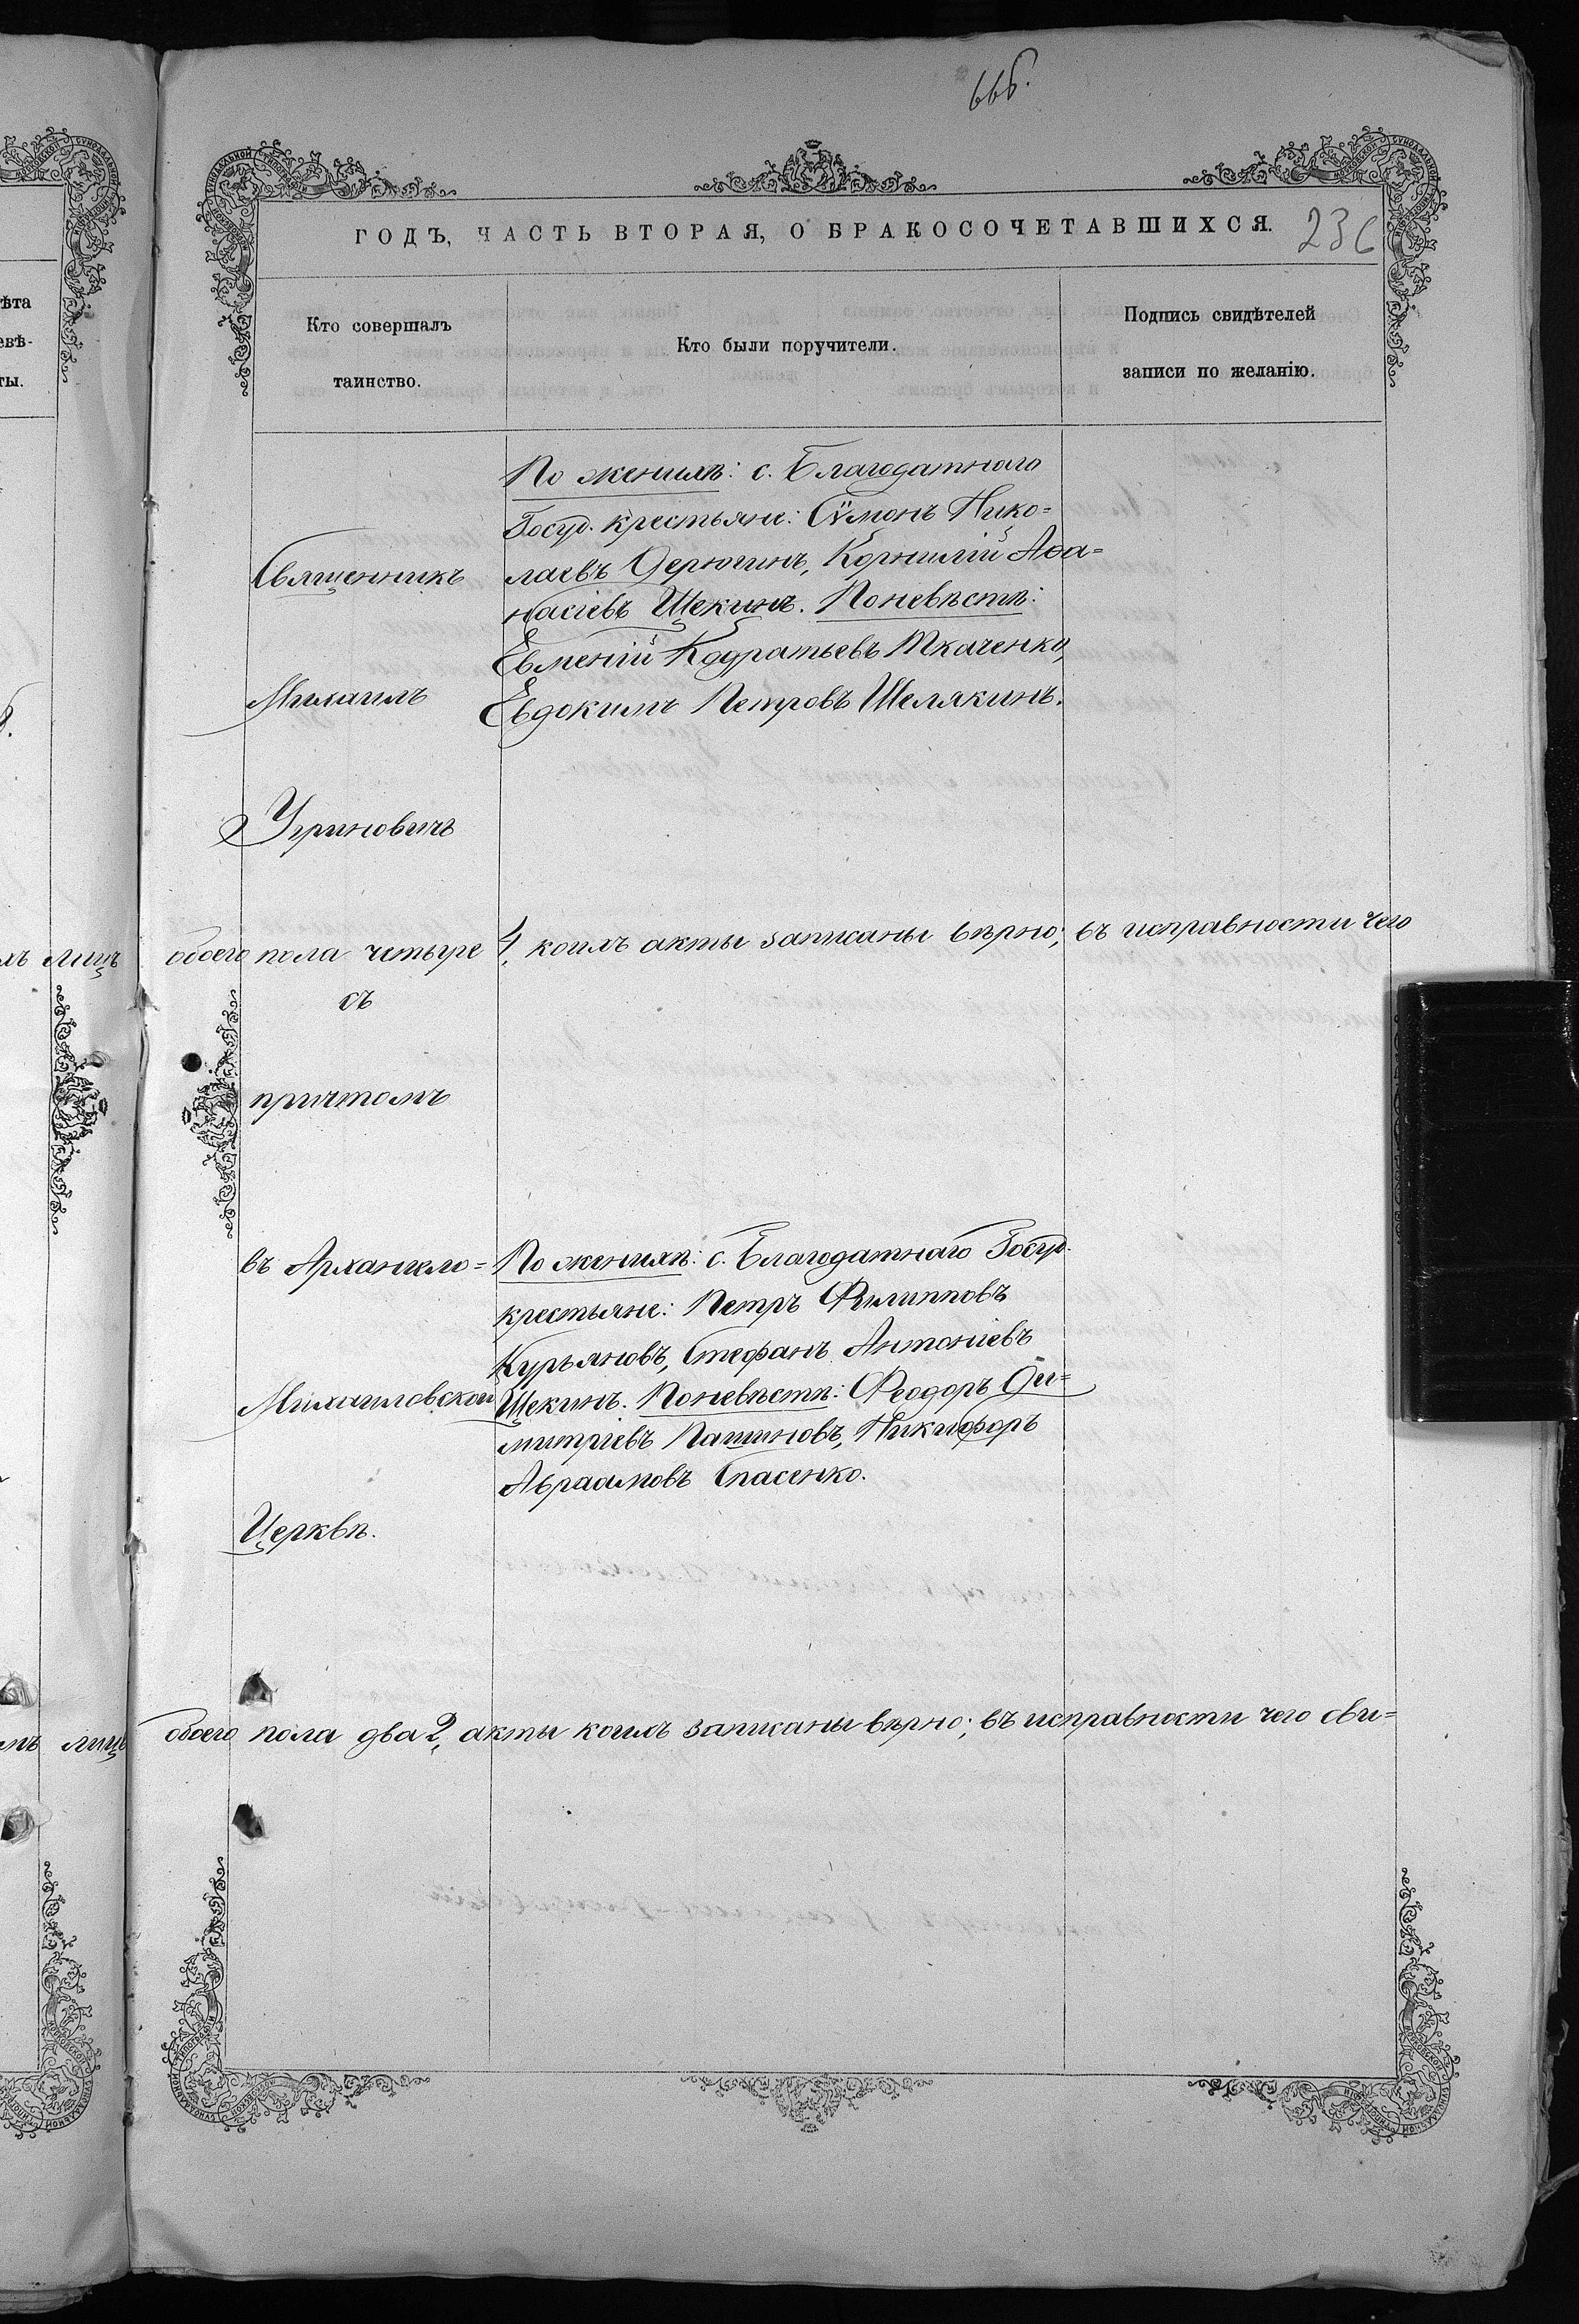 666.
ГОДЪ, ЧАСТЬ ВТОРАЯ, О БРАКОСОЧЕТАВШИХСЯ.
236
Кто совершалъ
таинство.
Кто были поручители.
Подпись свидѣтелей
записи по желанію.
По женихѣ: с. Благодатнаго
Госуд. крестьяне: Сѵмонъ Нико=
лаевъ Дерюгинъ, Корнилій Аѳа=
насіевъ Щекинъ. Поневѣстѣ:
Евменій Кодратьевъ Ткаченко,
Евдокимъ Петровъ Шелякинъ.
Священникъ
Михаилъ
Угриновичъ
лицъ обоего пола четыре 4, коихъ акты записаны вѣрно; въ исправности чего
съ
причтомъ
въ Архангело=
Михаиловской
Церквѣ.
По женихѣ: с. Благодатнаго Госуд.
крестьяне: Петръ Филипповъ
Курьяновъ, Стефанъ Антоніевъ
Щекинъ. Поневѣстѣ: Феодоръ Ди=
митріевъ Пашиновъ, Никифоръ
Авраамовъ Спасенко.
лицъ обоего пола два 2, акты коихъ записаны вѣрно; въ исправности чего сви=